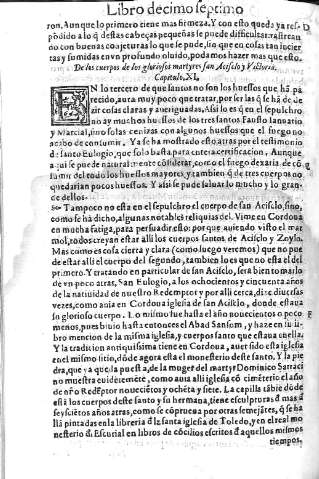 Libro decimo septimo
ron. Aunque lo primero tiene mas firmeza. Y con esto queda ya res-
põdido a lo q̃ destas cabeças pequeñas se puede difficultar: rastrean
do con buenas conjeturas lo que se pude, sin que en cosas tan incier
tas y sumidas en vn profundo oluido, podamos hazer mas que esto.
De los cuerpos de los gloriosos martyres san Acisclo y Victoria.
Capitulo. XI.
EN lo tercero de que santos no son los huessos que hã pa
recido, aura muy poco que tratar, por ser las q̃ se hã de de
zir cosas claras y aueriguadas. Assi lo es q̃ en el sepulchro
no ay muchos huessos de los tres santos Fausto Ianuario
y Marcial, sino solas cenizas con algunos huessos que el fuego no
acabo de consumir. Ya se ha mostrado esto atras por el testimonio
d̃ santo Eulogio, que solo basta para cutera certificacion. Aunque
aqui se puede naturalmente cõsiderar, como el fuego dexaria de cõ
sumir del todo los huessos mayores, y tambien q̃ de tres cuerpos no
quedarian pocos huessos. Y assi se pude saluar lo mucho y lo gran-
de dellos.
Tampoco no esta en el sepulchro el cuerpo de san Acisclo, sino,
como se hà dicho, algunas notables reliquias del. Vime en Cordoua
en mucha fatiga, para persuadir esto: por que auiendo visto el mar
mol, todos creyan estar alli los cuerpos santos de Acisclo y Zoylo.
Mas como es cosa cierta y clara (como luego veremos) que no pue
de estar alli el cuerpo del segundo, tambien lo es que no esta el del
primero. Y tratando en particular de san Acisclo, sera bien tomarlo
de vn poco atras. San Eulogio, a los ochocientos y cincuenta años
de la natiuidad de nuestro Redemptor y por alli cerca, dize diuersas
vezes, como auia en Cordoua iglesia de san Acisclo, donde estaua
su glorioso cuerpo. Lo mismo fue hasta el año nouecientos o poco
menos, pues biuio hasta entonces el Abad Sansom, y haze en su li-
bro mencion de la misma iglesia, y cuerpo santo que estaua en ella.
Y la tradition antiquissima tiene en Cordoua, auer sido esta iglesia
en el mismo sitio, dõde agora esta el monesterio deste santo. Y la pie
dra, que ya queda puesta, de la muger del martyr Dominico Sarraci
no muestra euidentemente, como auia alli iglesia cõ cimẽterio el año
de ñro Redẽptor nouecientos y ochẽta y siete. La capilla tãbiẽ dõde
està los cuerpos deste santo y su hermana, tiene esculpturas d̃ mas d̃
seyscietos años atras, como se cõprueua por otras semejãtes, q̃ se ha
llã pintadas en la libreria d̃ la santa iglesia de Toledo, y en el real mo
nesterio d̃l Escurial en libros de cõcilios escritos d̃ aquellos mismos
tiempos,